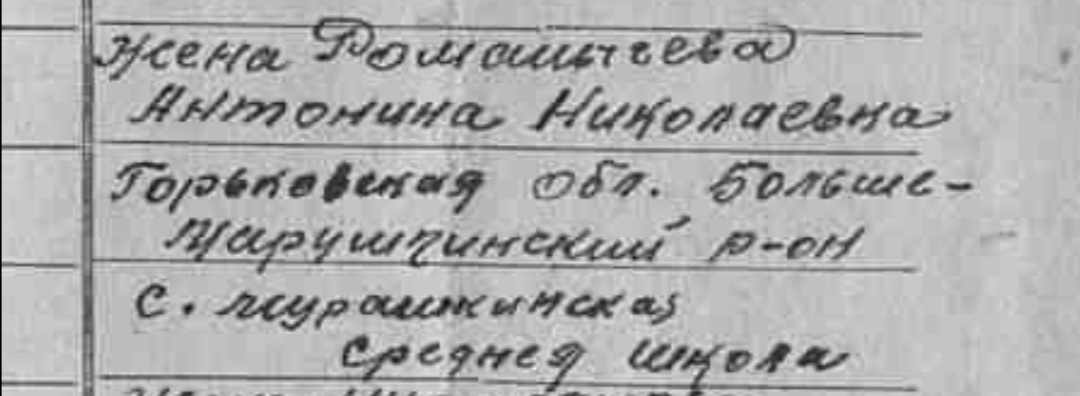 Жена Ромашычева
Антонина Николаевна
Горьковская обл. Больше-
Марушкинский р-он
с. мурашкинская
средняя школа